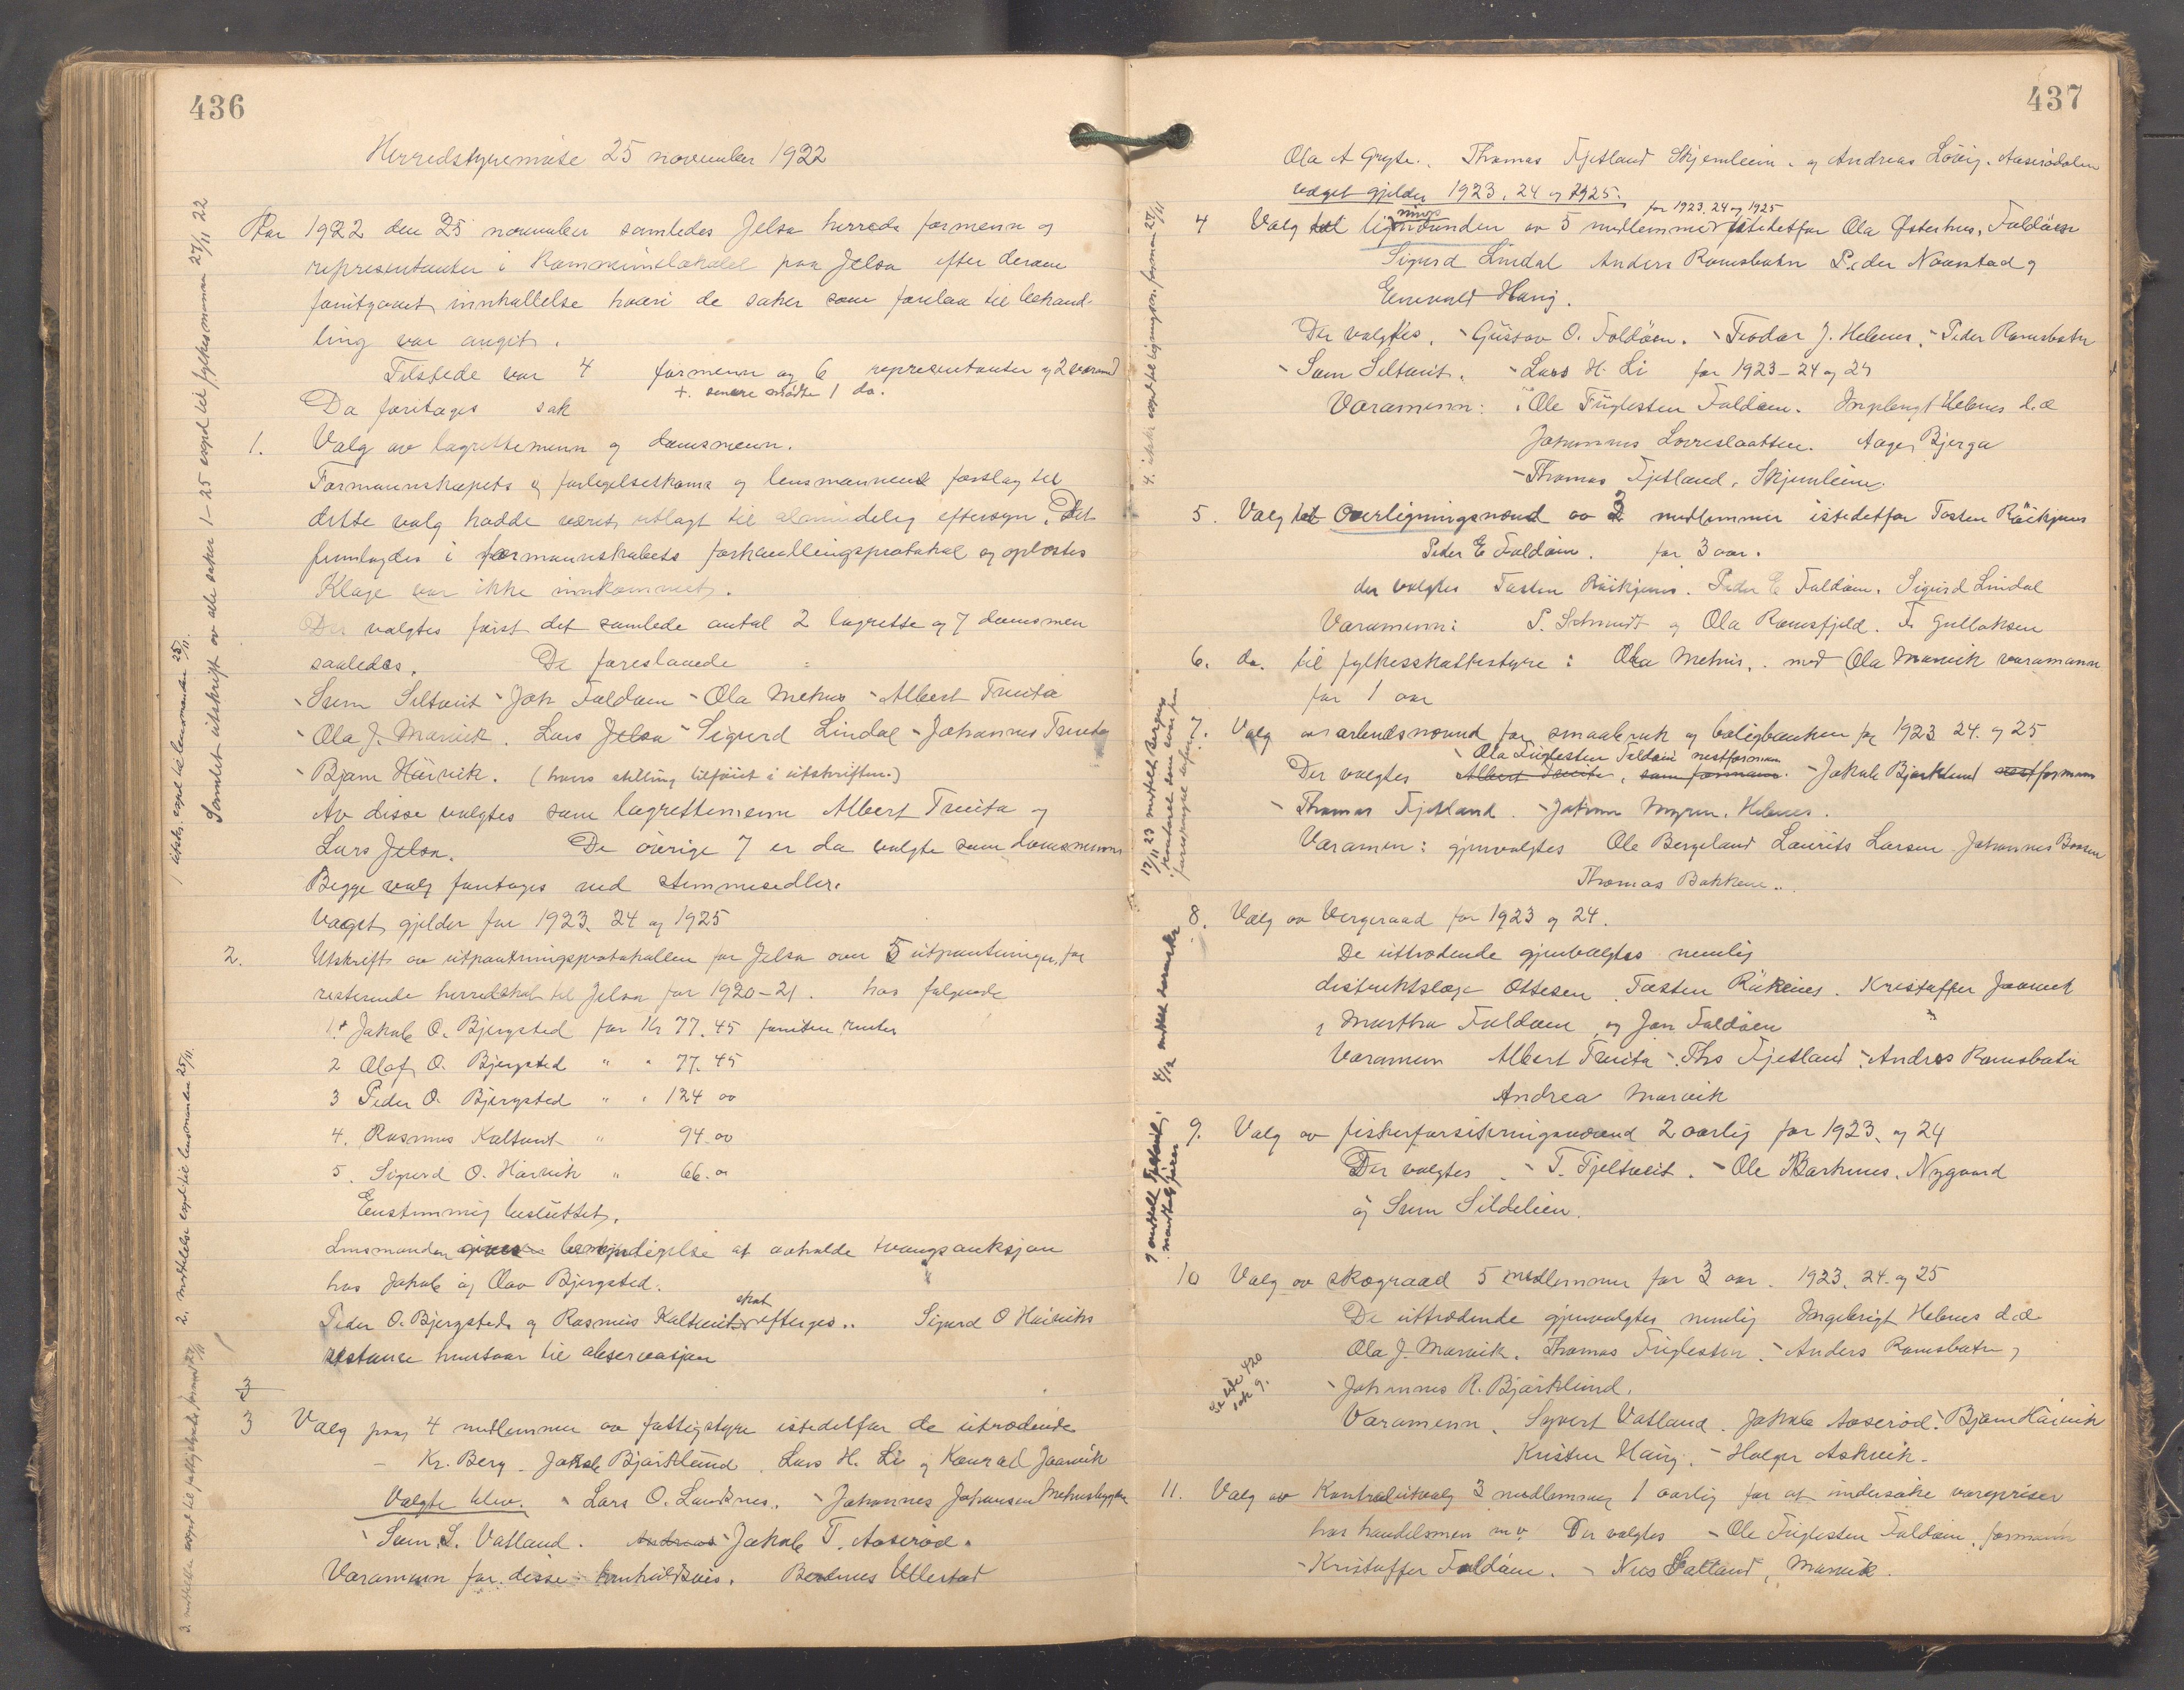 436
Herredstyremöte 25 november 1922
Aar 1922 den 25 november samledes Jelsa herreds formenn og
representanter i Kommunelokalet paa Jelsa efter derom
foritgaaet innkallelse hvori de saker som forelaa til behand-
ling var angit.
Tilstede var 4 formenn og 6 representanter og 2 varamd
+ senere mödte 1 do.
Da foretoges sak
1. Valg av lagrettemenn og domsmenn.
Formannskapets og lensmannens forslag til
dette valg hadde været utlagt til almindelig eftersyn. Det
fremlagdes i formannskabets forhandlingsprotokol og oplæstes
Klage var ikke innkommet.
Der valgtes först det samlede antal 2 lagrette og 7 domsmen
saaledes. De foreslaaede
Sven Seltveit - Joh Foldöen - Ola Mehus - Albert Tveita
Ola J. Marvik. Lars Jelsa - Sigurd Lindal - Johannes Tveita
Bjarne Häivik. (hvors stilling tilföiet i utskriften.)
Av disse valgtes som lagrettemenn Albert Tveita og
Lars Jelsa. De övrige 7 er da valgte som domsmenn
Begge valg foretoges ved stemmesedler.
Valget gjelder for 1923, 24 og 1925
2. Utskrift av utpantningsprotokollen for Jelsa over 5 utpantninger for
resterende herredskat til Jelsa for 1920-21. hos følgende
1. Jakob O. Bjergsted for Kr 77.45 foruten renter
2 Olaf O. Bjergsted " " 77.45
3 Peder O. Bjergsted " " 124 00
4. Rasmus Kaltveit " 94.00
5. Sigurd O. Häivik " 66.00
Enstemmig besluttet.
Lensmanden gives bemyndigelse at avholde tvangsauksjon
hos Jakob og Olav Bjergsted.
Peder O. Bjergsted og Rasmus Kaltveits skat efterges. Sigurd O Häiviks
restanse henstaar til observasjon
3
3 Valg paa 4 medlemmer av fattigstyre istedetfor de uttrædende
Kr. Berg - Jakob Bjørklund. Lars H. Li og Konrad Jaarvik
Valgte blev. Lars O. Landsnes. - Johannes Johansen Mehusbygden
Sven S. Vatland. Jakob T. Aaseröd.
Varamenn for disse henholdsvis. Berdines Ullestad
1 utskr. exped til lensmanden 25/11
Samlet utskrift av alle saker 1-25 exped til fylkesmannen 27/11 22
2. meddelelse exped til lensmanden 25/11.
437
Ola A Gryte. Thomas Fjetland Skjemleim. og Andreas Lövig. Aaserödalen
valget gjelder 1923, 24 og 1925.
4 Valg til ligningsnevnden av 5 medlemmer for 1923, 24 og 1925 istedetfor Ola Østerhus, Foldöen
Sigurd Lindal Anders Ramsbotn Peder Naavstad og
Enevald Haug.
Der valgtes. - Gustav O. Foldöen. - Teodor J. Helenes. - Peder Ramsbotn
- Sven Seltveit. - Lars H. Li for 1923-24 og 25
Varamenn: Ole Fuglesten Foldöen. Ingebrigt Helenes d.æ
Johannes Lovreslaatten. Aage Bjerga
- Thomas Fjetland, Skjemleim.
5. Valg til Overligningsnevnd av 3 medlemmer istedetfor Tosten Räikjenes
Peder E Foldöen. for 3 aar.
der valgtes Tosten Räikjenes. Peder E Foldöen. Sigurd Lindal
Varamenn: P. Schmidt og Ola Ramsfjeld. F. Gullaksen
6. do. til fylkesskattestyre: Ola Mehus. med Ola Marvik varamann
for 1 aar
7. Valg av arbeidsnevnd for smaabruk og boligbanken for 1923 24. og 25
Ola Fuglesten Foldöen nestformann
Der valgtes Albert Tveita, som formann. - Jakob Bjørklund nestformann
- Thomas Fjetland. - Johan Myren. Helenes.
Varamen: gjenvalgtes Ole Bergeland Lauritz Larsen Johannes Boasen
Thomas Bakken.
8. Valg av Vergeraad for 1923 og 24.
De uttrædende gjenvalgtes nemlig
distriktslæge Ottesen, Tosten Räikenes. Kristoffer Jaarvik
Martha Foldöen og Jon Foldöen
Varamenn Albert Tveita - Ths Fjetland - Andres Ramsbotn
Andrea Marvik
9. Valg av fiskerforsikringsnevnd 2 aarlig for 1923, og 24
Der valgtes. - T. Tjeltveit. - Ole Barkenes. Nygaard
og Sven Sildeleien.
10 Valg av skograad 5 medlemmer for 3 aar. 1923. 24. og 25
De uttrædende gjenvalgtes nemlig Ingebrigt Helenes d.æ
Ola J. Marvik. Thomas Fuglesten. - Anders Ramsbotn,
- Johannes R. Bjørklund.
Varamenn. Syvert Vatland. Jakob Aaseröd. Bjarne Häivik
Kristen Haug. - Holger Askvik.
11. Valg av Kontrolutvalg 3 medlemmer 1 aarlig for at undersøke varepriser
hos handelsmen m.v. Der valgtes - Ole Fuglesten Foldöen. formann
- Kristoffer Foldöen. - Nils Fatland, Marvik.
Se side 420
sak 9.